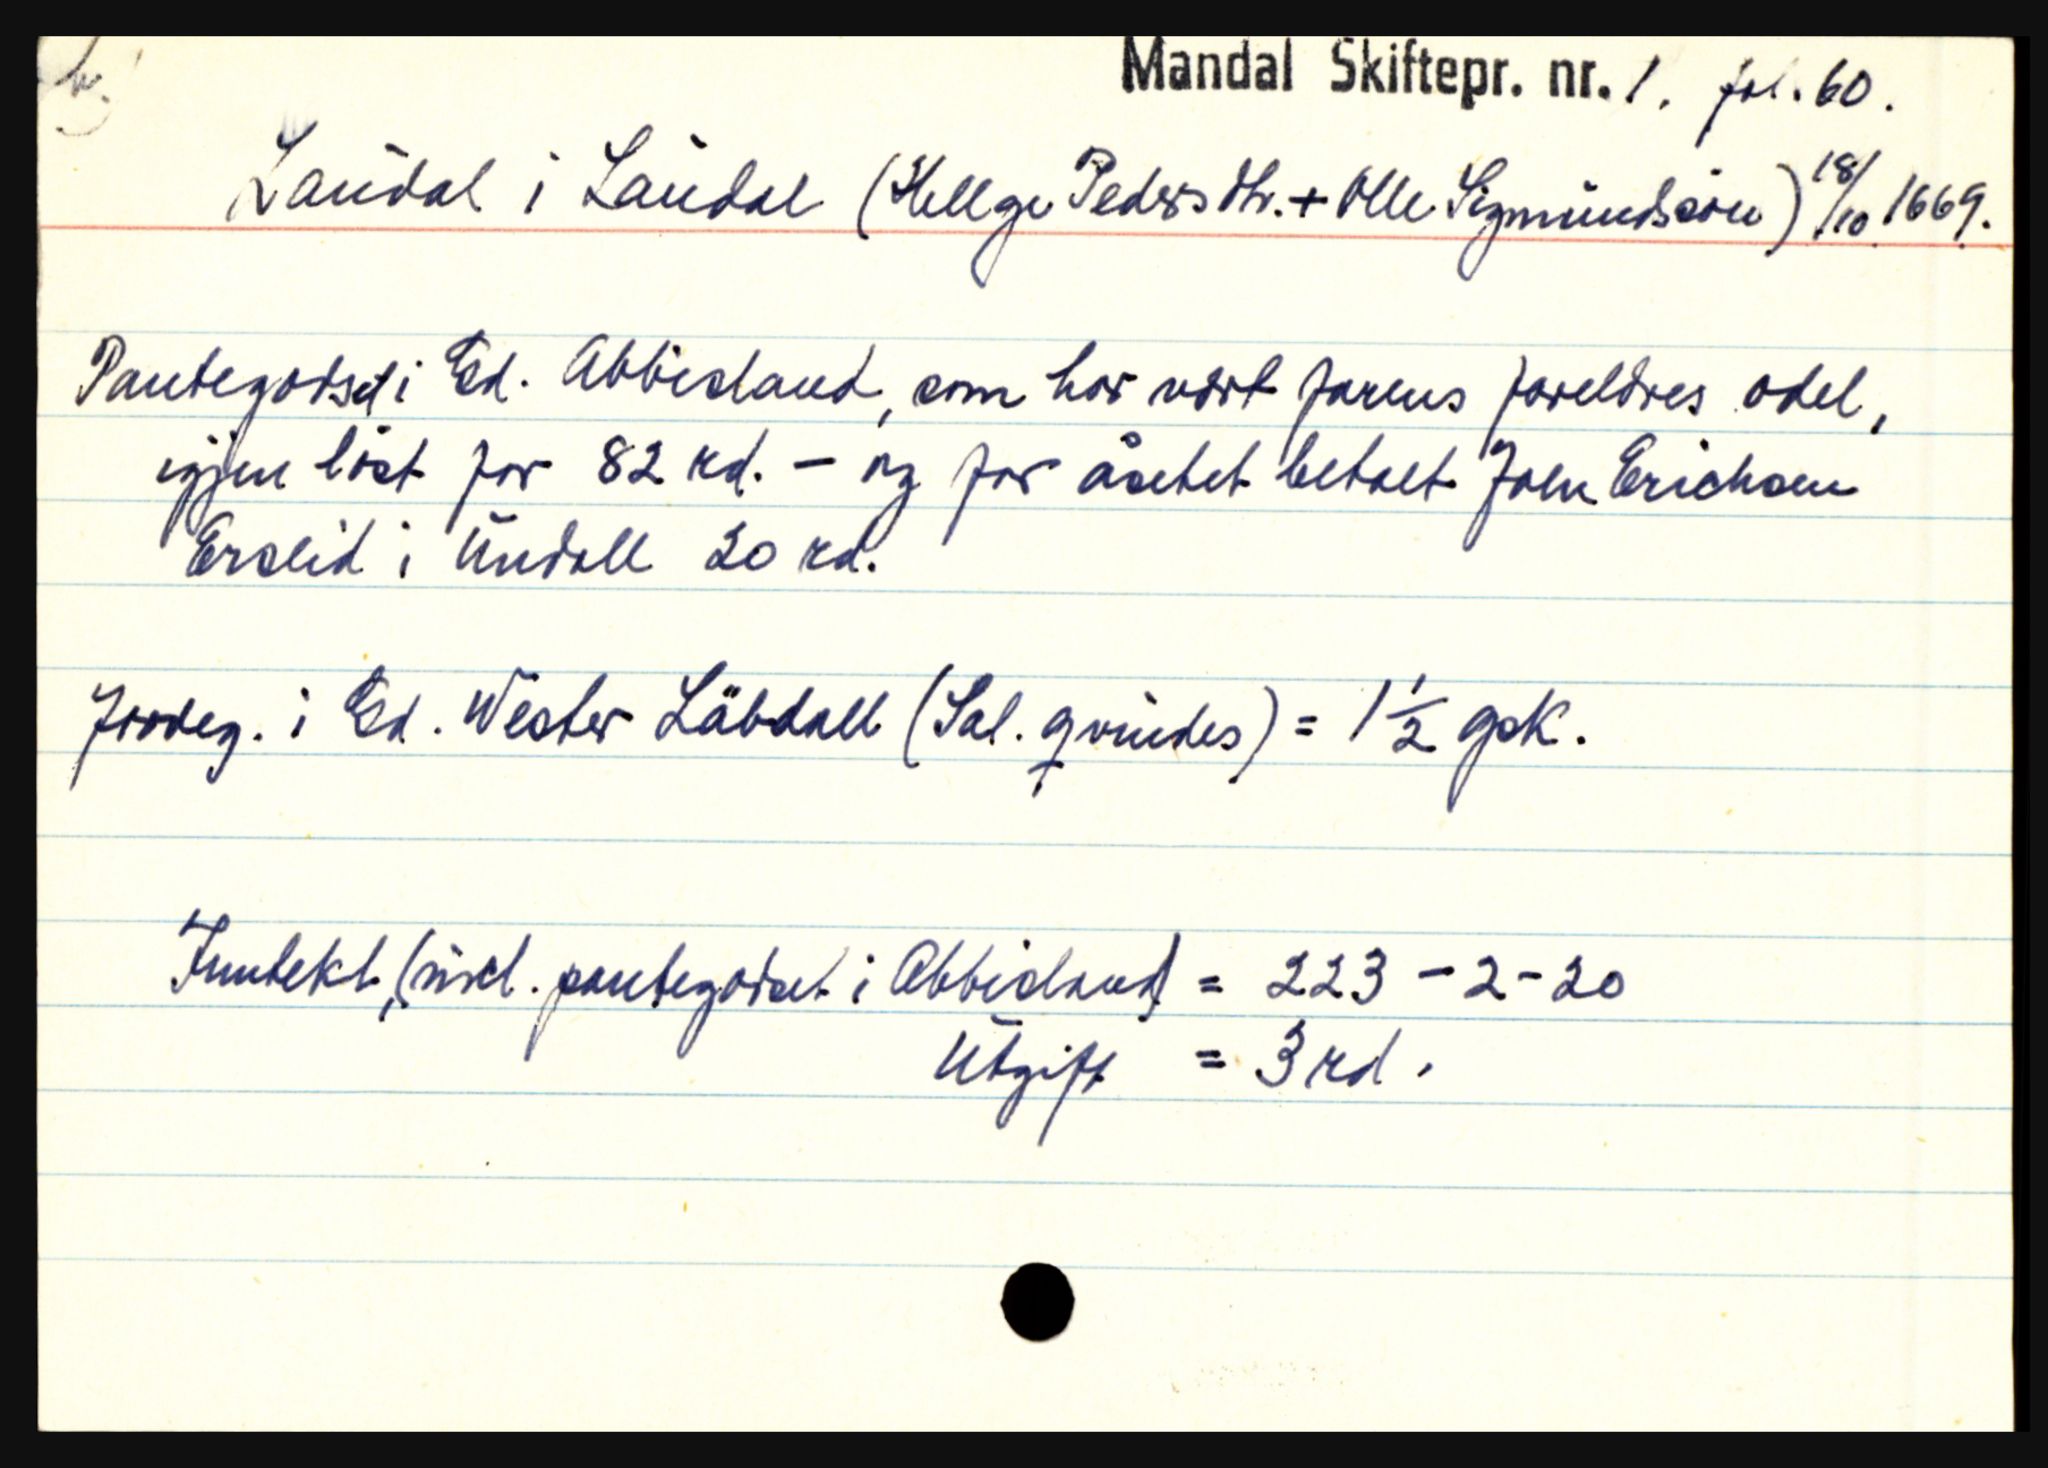 Mandal Skiftepr. nr. 1. fol. 60.
Laudal i Laudal (Hellge Pedersdtr. + Olle Sigmundsøn) 18/10 1669.
Pantegodset i Ed. Abbisland, som har vært farens foreldres odel,
igjen løst for 82 rd. - og for åsetet betalt John Erichsen
Erslid i Undall 20 rd.
Jordeg. i Ed. Wester Lâbdall (Sal. qvindes) = 1 1/2 gsk.
Inntekt, (incl. pantegodset i Abbisland) = 223 - 2 - 20
Utgift = 3 rd.